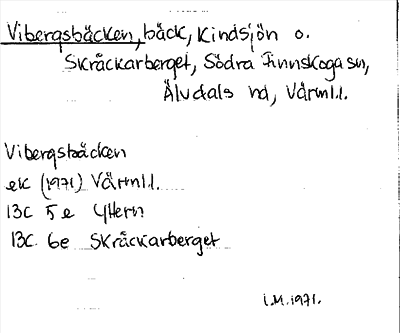 Vibergsbäcken, bäck, Kindsjön o.
Skråckarberget, Södra Finnskoga sn,
Älvdals hd, Värml.
Vibergsbäcken
ek (1971) Värml.
13C 5e Yttern
13C 6e Skråckarberget
I.M. 1971.